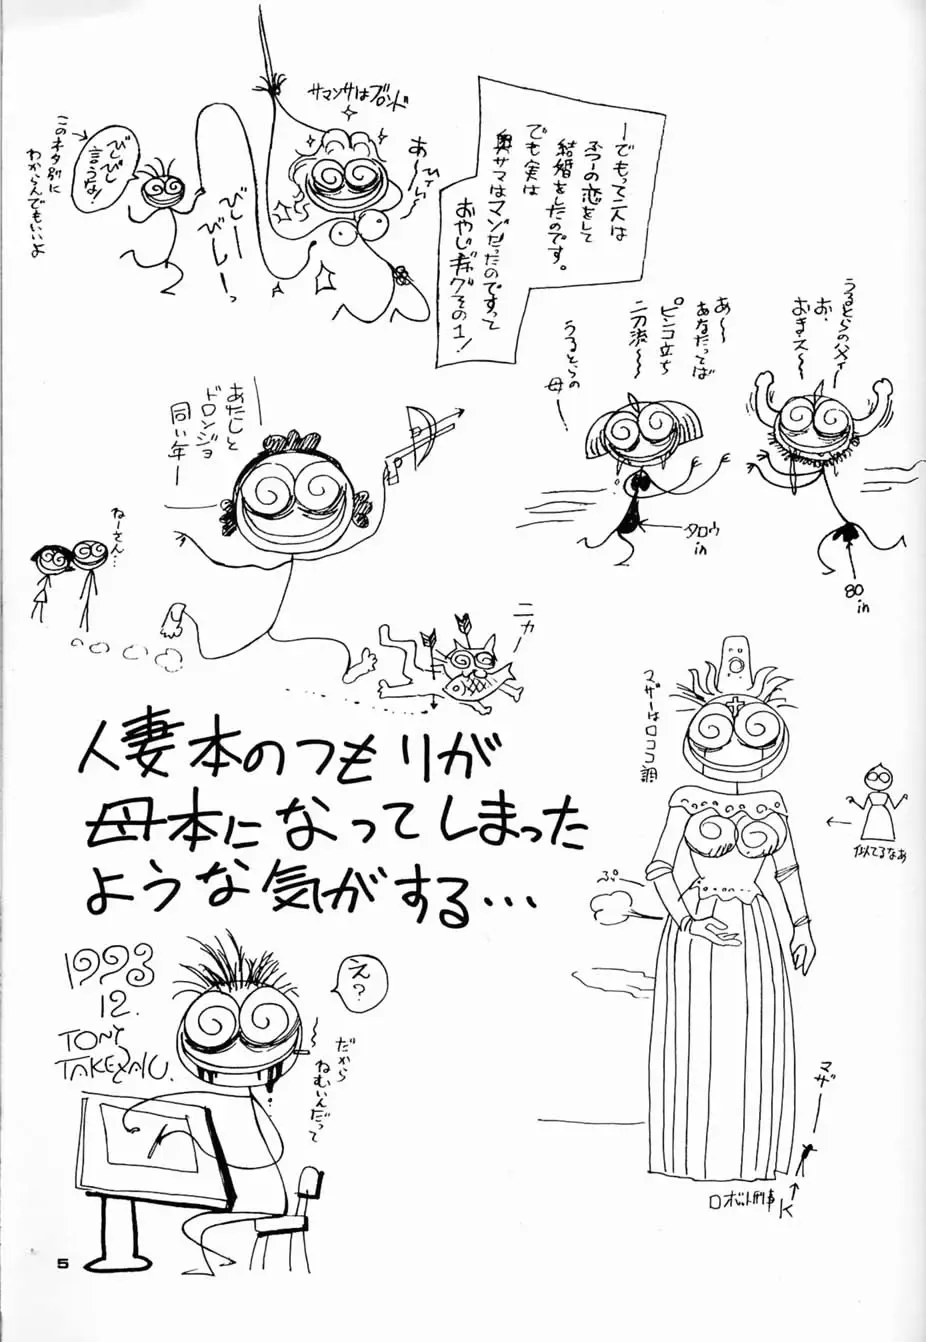 ーでもって二人は
ふつーの恋をして
結婚をしたのです。
でも実は
奥サマはマゾだったのですって
おやじギャグその1!
サマンサはブロンド
あ〜
びしー
びしーっ
びしびし
言うな!
このネタ別に
わからんでもいいよ
うるとらの父ィ
お、
おぎ、ス〜
あ〜
あなたってば
ピンコ立ち
二刀流〜
うるとらの
母ー
タロウ
in
80
in
あたしと
ドロンジョ
同い年ー
ねーさん…
ニカー
人妻本のつもりが
母本になってしまった
ような気がする…
マザーはロココ調
似てるなあ
ぷー
マザー
ロボット刑事K
1993
12.
TONY
TAKEZAKI.
え?
だから
ねむいんだって
5